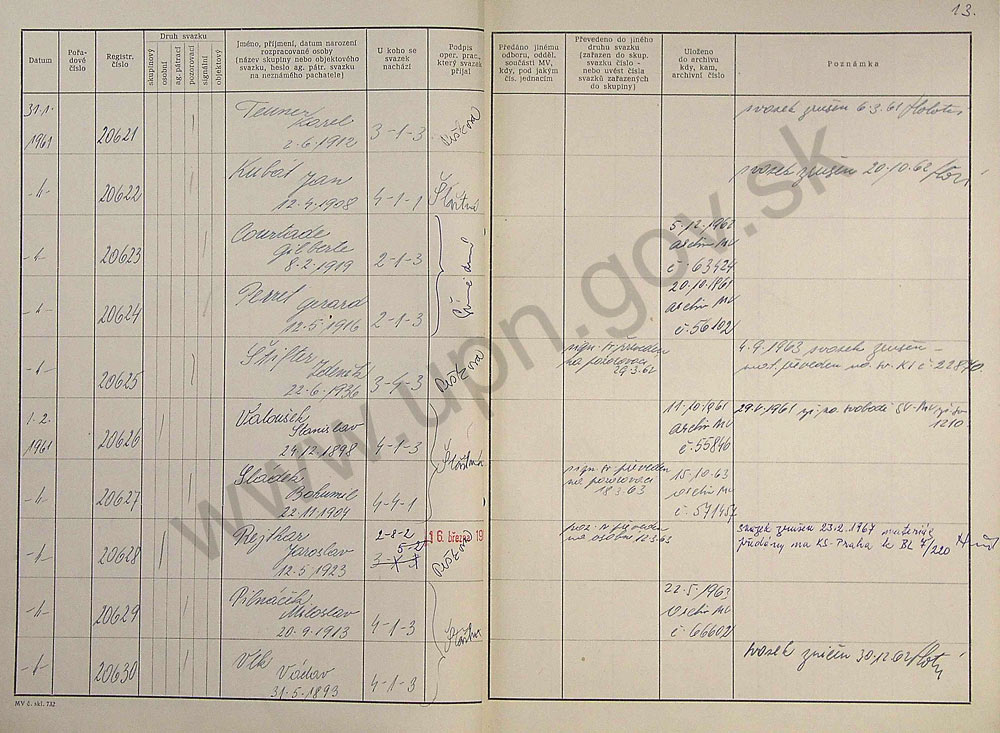 13.
Datum
Pořa-
dové
číslo
Registr.
číslo
Druh svazku
skupinový
osobní
ag. pátrací
pozorovací
signální
objektový
Jméno, příjmení, datum narození
rozpracované osoby
(název skupiny nebo objektového
svazku, heslo ag. pátr. svazku
na neznámého pachatele)
U koho se
svazek
nachází
Podpis
oper. prac.,
který svazek
přijal
Předáno jinému
odboru, odděl.
součásti MV,
kdy, pod jakým
čís. jednacím
Převedeno do jiného
druhu svazku
(zařazen do skup.
svazku číslo -
nebo uvést čísla
svazků zařazených
do skupiny)
Uloženo
do archivu
kdy, kam,
archivní číslo
Poznámka
31.1.
1961
20621
Karel
2.6.1912
3-1-3
svazek zrušen 6.3.61
-"-
20622
Kubát Jan
12.4.1908
4-1-1
svazek zrušen 20.10.62
-"-
20623
Courtade
Gilberte
8.2.1919
2-1-3
5.12.1961
archiv MV
č. 63424
-"-
20624
Perret Gerard
12.5.1916
2-1-3
20.10.1961
archiv MV
č. 56102
-"-
20625
Štifter
Zdeněk
22.6.1936
3-4-3
sign. sv. převeden
na pozorovací
29.3.62
4.9.1963 svazek zrušen -
č. 22870
1.2.
1961
20626
Valoušek
Stanislav
29.12.1898
4-1-3
11.10.1961
archiv MV
č. 55840
1210
-"-
20627
Sládek
Bohumil
22.11.1904
4-4-1
sign. sv. převeden
na pozorovací
18.3.63
15.10.63
archiv MV
-"-
20628
Rejthar
Jaroslav
12.5.1923
2-8-2
16. března 19
poz. sv. převeden
na osobní 12.3.63
svazek zrušen 23.2.1967 materiály
předány na KS-Praha k BL 7/220
-"-
20629
Miloslav
20.9.1913
4-1-3
22.5.1963
archiv MV
č. 66602
-"-
20630
Vlk
Václav
31.5.1893
4-1-3
svazek zničen 30.12.62
MV č. skl. 732
www.upn.gov.sk